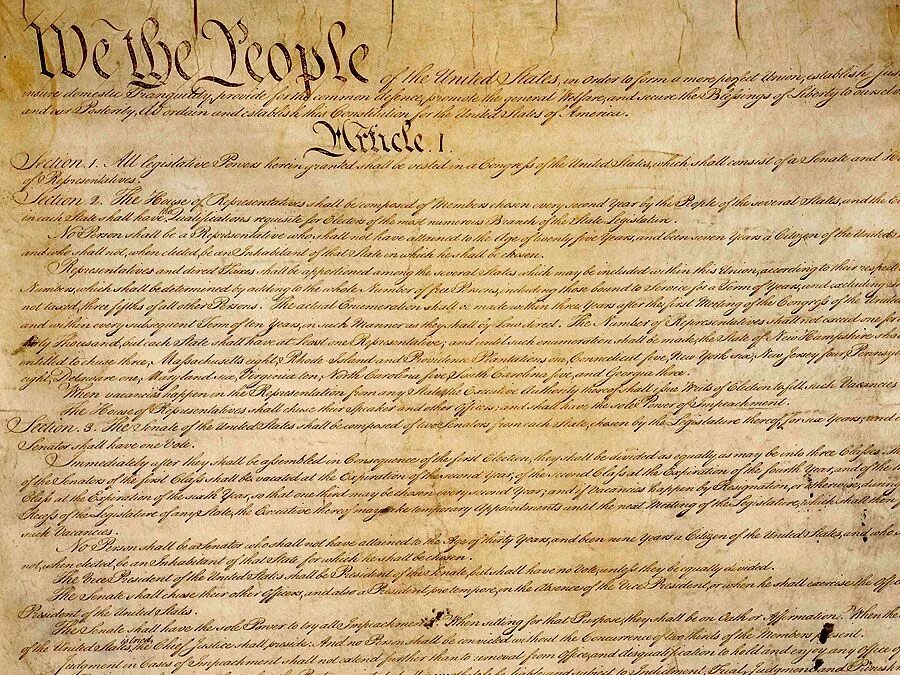 We the People of the United States, in Order to form a more perfect Union, establish Jus
insure domestic Tranquility, provide for the common defence, promote the general Welfare, and secure the Blessings of Liberty to oursel
and our Posterity, do ordain and establish this Constitution for the United States of America.
Article. I.
Section. 1. All legislative Powers herein granted shall be vested in a Congress of the United States, which shall consist of a Senate and
of Representatives.
Section. 2. The House of Representatives shall be composed of Members chosen every second Year by the People of the several States, and the
in each State shall have the Qualifications requisite for Electors of the most numerous Branch of the State Legislature.
No Person shall be a Representative who shall not have attained to the Age of twenty five Years, and been seven Years a Citizen of the United
and who shall not, when elected, be an Inhabitant of that State in which he shall be chosen.
Representatives and direct Taxes shall be apportioned among the several States which may be included within this Union, according to their respect
Numbers, which shall be determined by adding to the whole Number of free Persons, including those bound to Service for a Term of Years, and excluding
not taxed, three fifths of all other Persons. The actual Enumeration shall be made within three Years after the first Meeting of the Congress of the United
and within every subsequent Term of ten Years, in such Manner as they shall by Law direct. The Number of Representatives shall not exceed one for
thirty Thousand, but each State shall have at Least one Representative; and until such enumeration shall be made, the State of New Hampshire sha
entitled to chuse three, Massachusetts eight, Rhode Island and Providence Plantations one, Connecticut five, New York six, New Jersey four, Pennsyl
eight, Delaware one, Maryland six, Virginia ten, North Carolina five, South Carolina five, and Georgia three.
When vacancies happen in the Representation from any State, the Executive Authority thereof shall issue Writs of Election to fill such Vacancies
The House of Representatives shall chuse their Speaker and other Officers; and shall have the sole Power of Impeachment.
Section. 3. The Senate of the United States shall be composed of two Senators from each State, chosen by the Legislature thereof, for six Years; and
Senator shall have one Vote.
Immediately after they shall be assembled in Consequence of the first Election, they shall be divided as equally as may be into three Classes. The
of the Senators of the first Class shall be vacated at the Expiration of the second Year, of the second Class at the Expiration of the fourth Year, and of the
Class at the Expiration of the sixth Year, so that one third may be chosen every second Year; and if Vacancies happen by Resignation, or otherwise, during
Recess of the Legislature of any State, the Executive thereof may make temporary Appointments until the next Meeting of the Legislature, which shall then
such Vacancies.
No Person shall be a Senator who shall not have attained to the Age of thirty Years, and been nine Years a Citizen of the United States, and who
not, when elected, be an Inhabitant of that State for which he shall be chosen.
The Vice President of the United States shall be President of the Senate, but shall have no Vote, unless they be equally divided.
The Senate shall chuse their other Officers, and also a President pro tempore, in the Absence of the Vice President, or when he shall exercise the Office
President of the United States.
The Senate shall have the sole Power to try all Impeachments. When sitting for that Purpose, they shall be on Oath or Affirmation. When the
of the United States is tried, the Chief Justice shall preside: And no Person shall be convicted without the Concurrence of two thirds of the Members present.
Judgment in Cases of Impeachment shall not extend further than to removal from Office, and disqualification to hold and enjoy any Office of